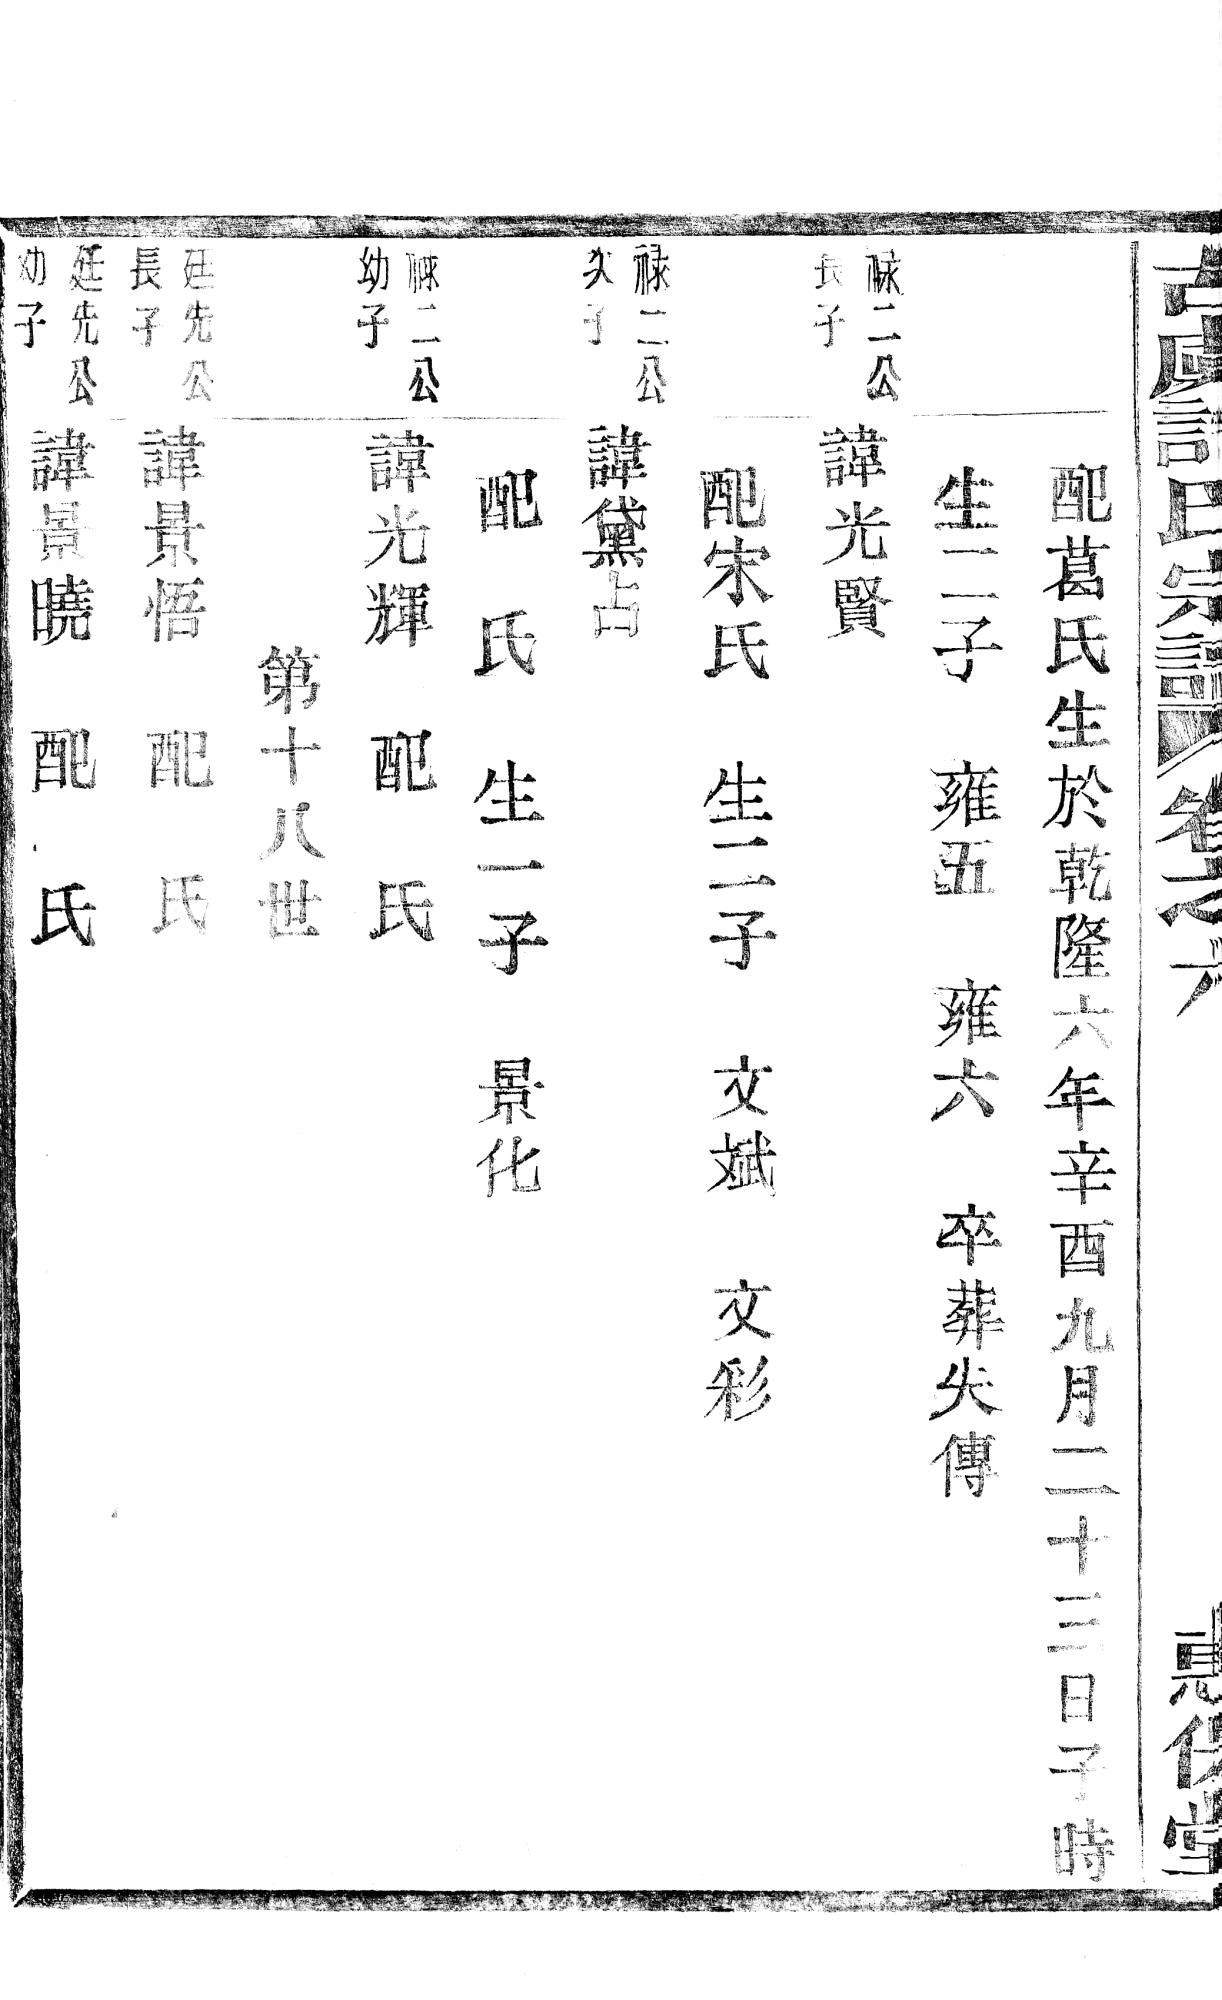 古虞許氏宗譜卷之六
惠保堂
配葛氏生於乾隆六年辛酉九月二十三日子時
生二子　雍五　雍六　卒葬失傳
祿二公
長子
諱光賢
配宋氏　生二子　文斌　文彩
祿二公
次子
諱黛占
配　氏　生一子　景化
祿二公
幼子
諱光輝　配　氏
第十八世
廷先公
長子
諱景悟　配　氏
廷先公
幼子
諱景曉　配　氏